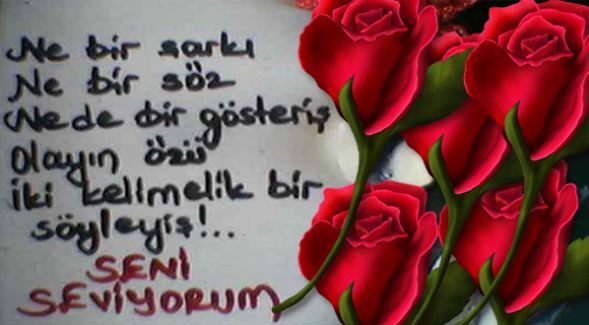 Ne bir şarkı
Ne bir söz
Nede bir gösteriş
Olayın özü
iki kelimelik bir
söyleyiş!..
SENİ
SEVİYORUM